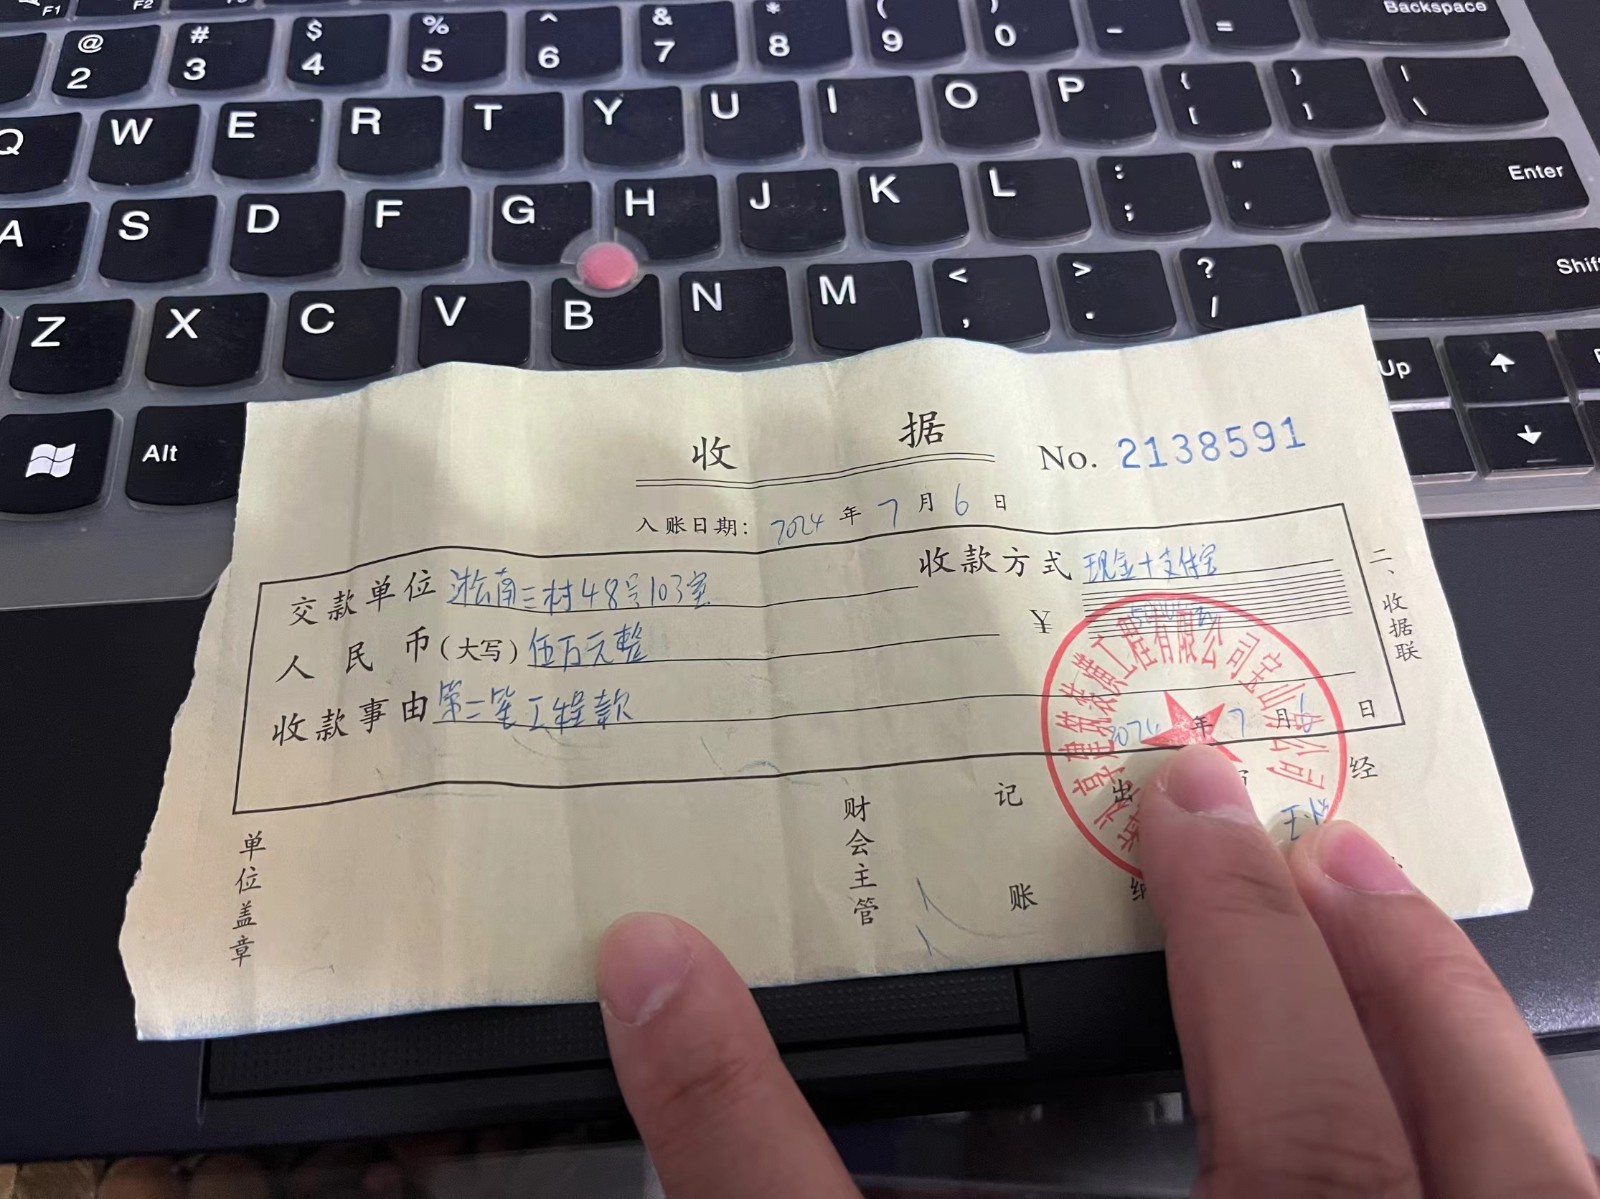 F1
F2
@ 2
# 3
$ 4
% 5
^ 6
& 7
* 8
( 9
) 0
-
=
Backspace
Q W E R T Y U I O P { [ } ] | \
A S D F G H J K L : ; " ' Enter
Z X C V B N M < , > . ? / Shif
Alt
Up
收据
No. 2138591
入账日期: 2024 年 7 月 6 日
交款单位 淞南三村48号103室 收款方式 现金+支付宝
人民币(大写) 伍万元整 ¥
收款事由 第二笔工程款
2024 年 7 月 6 日
二、收据联
建筑装潢工程有限公司宝山分公司
单位盖章
财会主管
记账
出纳
经